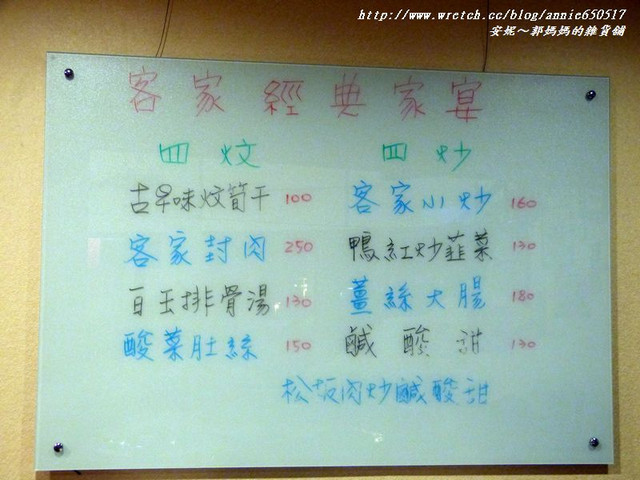 http://www.wretch.cc/blog/annie650517
安妮～郭媽媽的雜貨舖
客家經典家宴
四炆 四炒
古早味炆筍干 100 客家小炒 160
客家封肉 250 鴨紅炒韮菜 130
百玉排骨湯 130 薑絲大腸 180
酸菜肚絲 150 鹹酸甜 130
松坂肉炒鹹酸甜